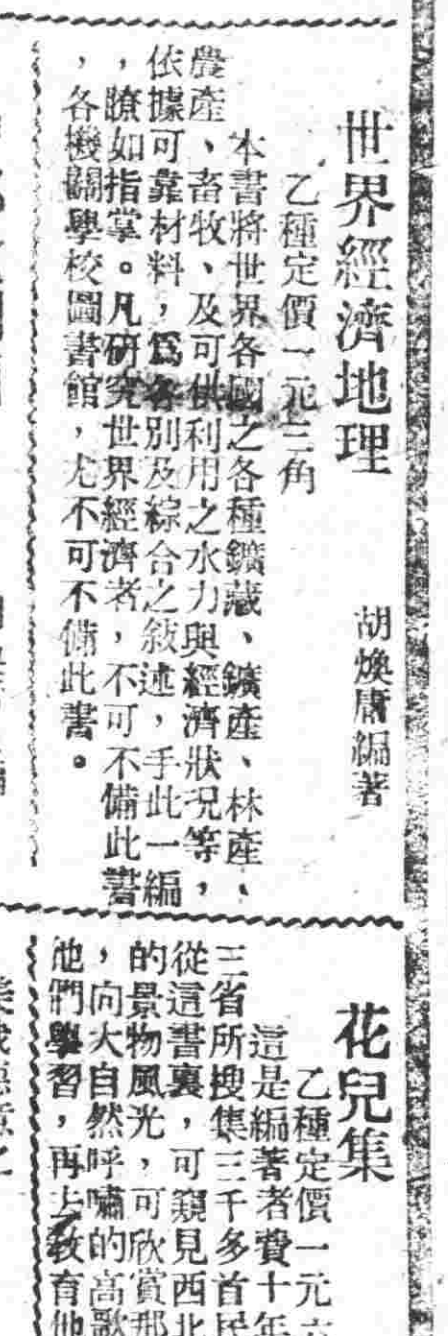 世界經濟地理
胡煥庸編著
乙種定價一元三角
本書將世界各國之各種鑛藏、鑛產、林產、
農產、畜牧、及可供利用之水力與經濟狀況等，
依據可靠材料，爲各別及綜合之敍述，手此一編
，瞭如指掌。凡研究世界經濟者，不可不備此書
，各機關學校圖書館，尤不可不備此書。
花兒集
乙種定價一元六
這是編著者費十年
三省所搜集三千多首民
從這書裏，可窺見西北
的景物風光，可欣賞那
，向大自然呼嘯的高歌
他們學習，再去教育他